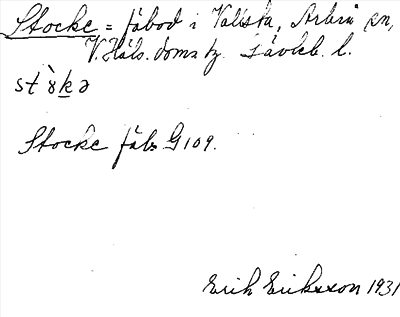 Stocke = fäbod i Vallsta, Arbrå sn,
V. Häls. doms. tg. Gävleb. l.
Stocke fäbs G 109.
Erik Eriksson 1931